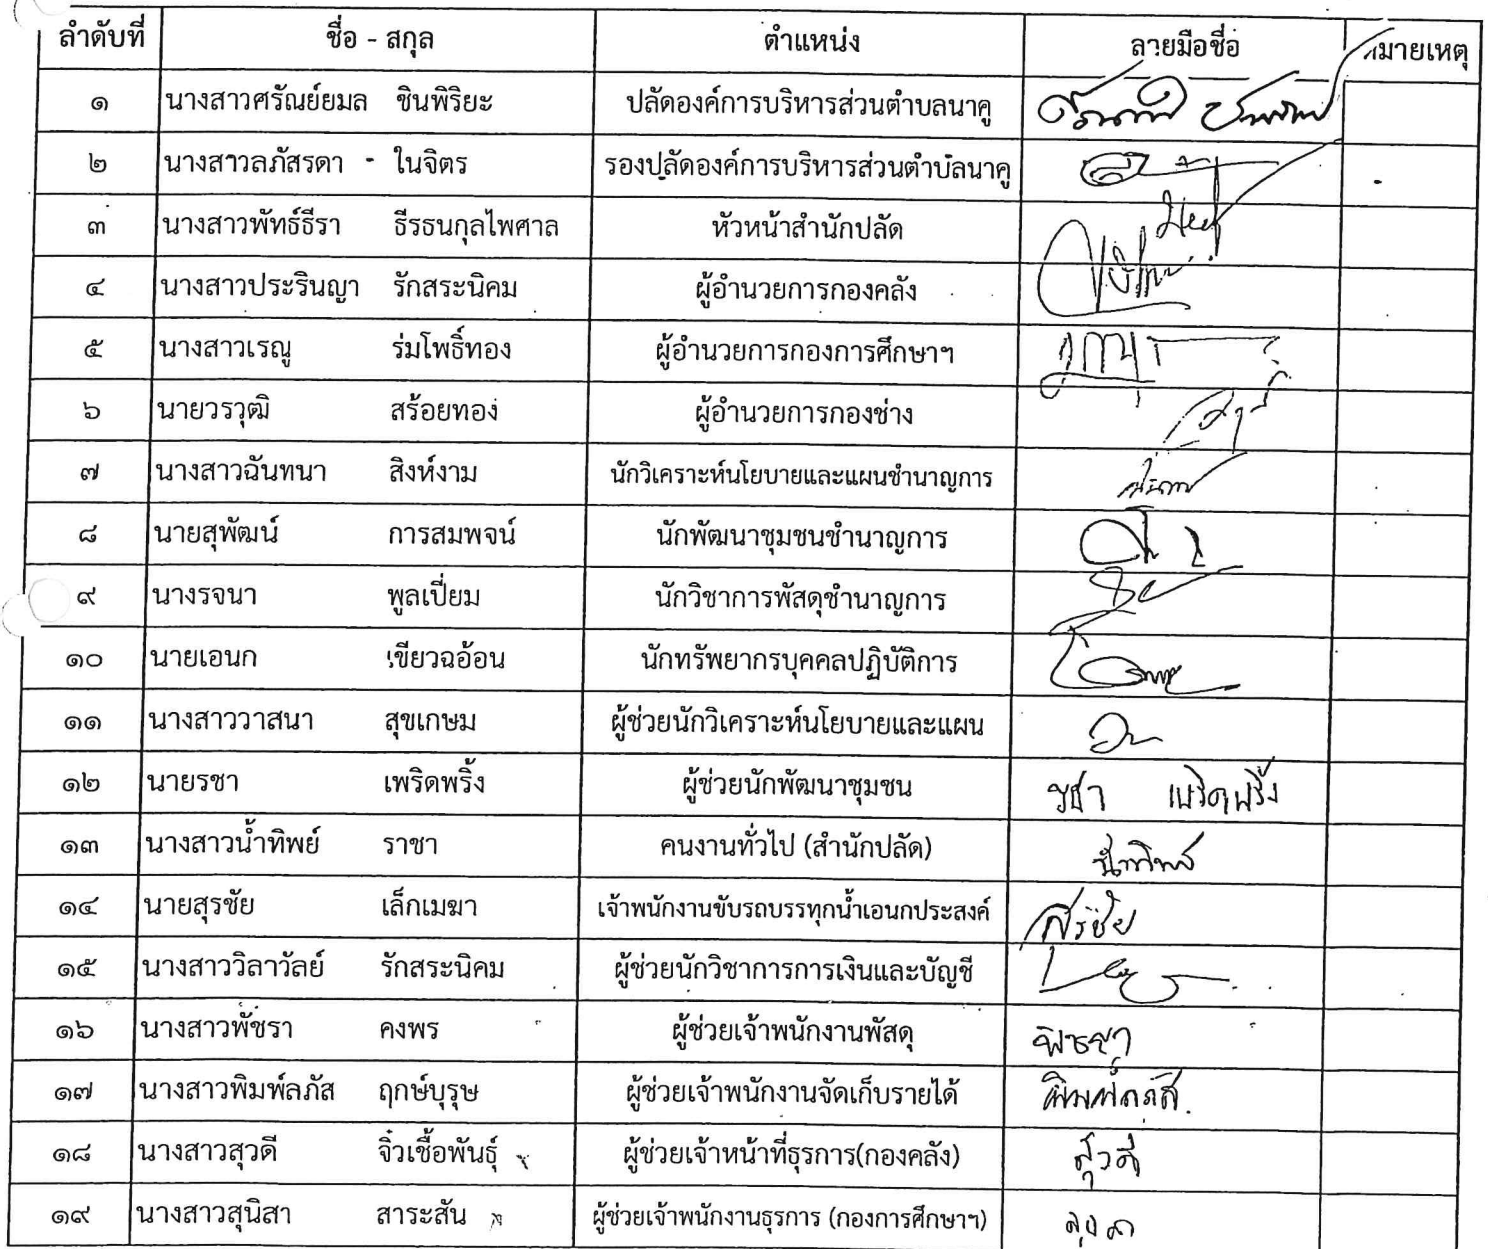 ลำดับที่ ชื่อ - สกุล ตำแหน่ง ลายมือชื่อ หมายเหตุ
๑ นางสาวศรัณย์ยมล ชินพิริยะ ปลัดองค์การบริหารส่วนตำบลนาคู
๒ นางสาวลภัสรดา - ในจิตร รองปลัดองค์การบริหารส่วนตำบลนาคู
๓ นางสาวพัทธ์ธีรา ธีรธนกุลไพศาล หัวหน้าสำนักปลัด
๔ นางสาวประรินญา รักสระนิคม ผู้อำนวยการกองคลัง
๕ นางสาวเรณู ร่มโพธิ์ทอง ผู้อำนวยการกองการศึกษาฯ
๖ นายวรวุฒิ สร้อยทอง ผู้อำนวยการกองช่าง
๗ นางสาวฉันทนา สิงห์งาม นักวิเคราะห์นโยบายและแผนชำนาญการ
๘ นายสุพัฒน์ การสมพจน์ นักพัฒนาชุมชนชำนาญการ
๙ นางรจนา พูลเปี่ยม นักวิชาการพัสดุชำนาญการ
๑๐ นายเอนก เขียวฉอ้อน นักทรัพยากรบุคคลปฏิบัติการ
๑๑ นางสาววาสนา สุขเกษม ผู้ช่วยนักวิเคราะห์นโยบายและแผน
๑๒ นายรชา เพริดพริ้ง ผู้ช่วยนักพัฒนาชุมชน รชา เพริดพริ้ง
๑๓ นางสาวน้ำทิพย์ ราชา คนงานทั่วไป (สำนักปลัด) น้ำทิพย์
๑๔ นายสุรชัย เล็กเมฆา เจ้าพนักงานขับรถบรรทุกน้ำเอนกประสงค์ สุรชัย
๑๕ นางสาววิลาวัลย์ รักสระนิคม ผู้ช่วยนักวิชาการการเงินและบัญชี
๑๖ นางสาวพัชรา คงพร ผู้ช่วยเจ้าพนักงานพัสดุ พัชรา
๑๗ นางสาวพิมพ์ลภัส ฤกษ์บุรุษ ผู้ช่วยเจ้าพนักงานจัดเก็บรายได้ พิมพ์ลภัส.
๑๘ นางสาวสุวดี จิ๋วเชื้อพันธุ์ ผู้ช่วยเจ้าหน้าที่ธุรการ(กองคลัง) สุวดี
๑๙ นางสาวสุนิสา สาระสัน ผู้ช่วยเจ้าพนักงานธุรการ (กองการศึกษาฯ)